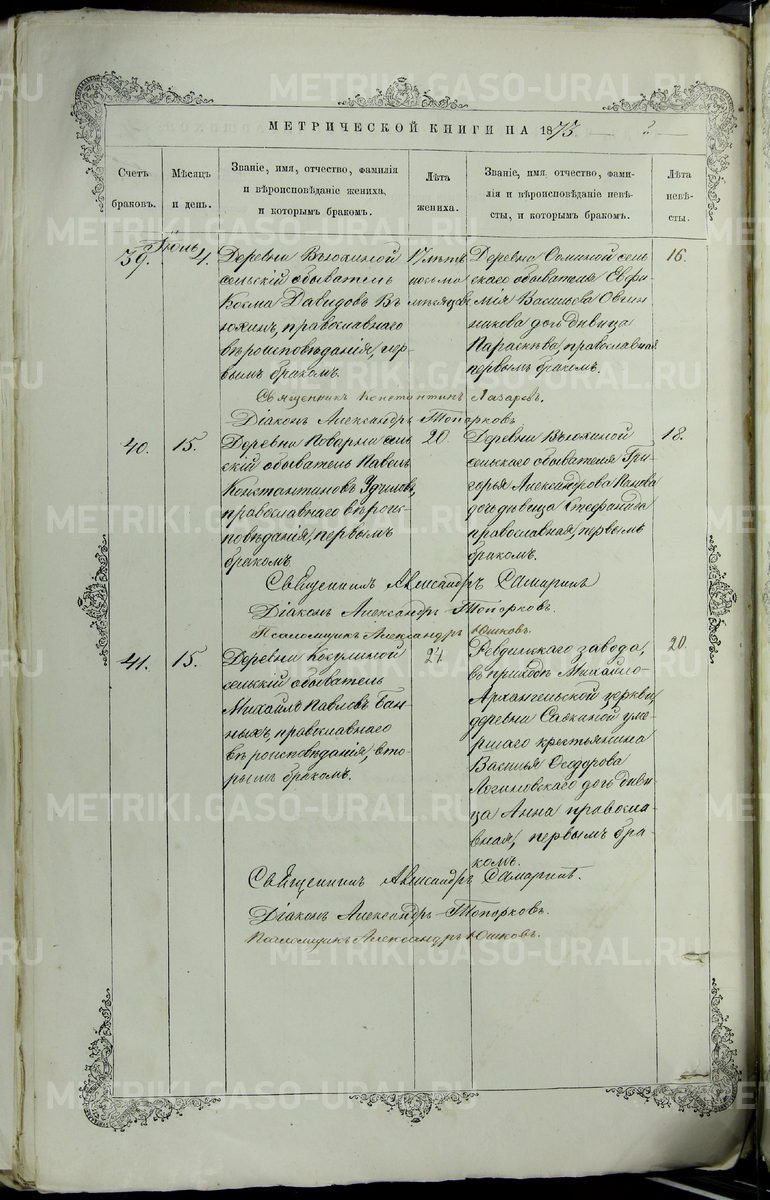 МЕТРИЧЕСКОЙ КНИГИ НА 1873
Счетъ браковъ.
Мѣсяцъ и день.
Званіе, имя, отчество, фамилія и вѣроисповѣданіе жениха, и которымъ бракомъ.
Лѣта жениха.
Званіе, имя, отчество, фами-
лія и вѣроисповѣданіе невѣ-
сты, и которымъ бракомъ.
Лѣта невѣ-
сты.
39.
4.
Деревни Вьюхиной
сельскій обыватель
Косма Давидовъ Вь
юхинъ, православнаго
вѣроисповѣданія, пер-
вымъ бракомъ.
17 лѣтъ
восемь
мѣсяцевъ
Деревни сель
скаго обывателя Евфи
мія Васильева Овчин
никова дочь дѣвица
Параскева, православная
первымъ бракомъ.
16.
Священникъ Константинъ Лазаревъ.
Діаконъ Александръ Топорковъ
40.
15.
Деревни сель
скій обыватель Павелъ
Константиновъ
православнаго вѣроис-
повѣданія, первымъ
бракомъ
20.
Деревни Вьюхиной
сельскаго обывателя Гри
горья Александрова
дочь дѣвица Стефанида
православная, первымъ
бракомъ.
18.
Священникъ Александръ Самаринъ
Діаконъ Александръ Топорковъ.
Псаломщикъ Александръ Юшковъ.
41.
15.
Деревни Косулиной
сельскій обыватель
Михайлъ Павловъ Бан
ныхъ, православнаго
вѣроисповѣданія, вто-
рымъ бракомъ.
24.
Ревдинскаго завода,
въ приходѣ Михайло-
Архангельской церкви,
деревни уме
ршаго крестьянина
Василья Ѳеодорова
Логиновскаго дочь дѣви
ца Анна правосла-
вная, первымъ бра-
комъ.
20.
Священникъ Александръ Самаринъ.
Діаконъ Александръ Топорковъ.
Псаломщикъ Александръ Юшковъ.
METRIKI.GASO-URAL.RU